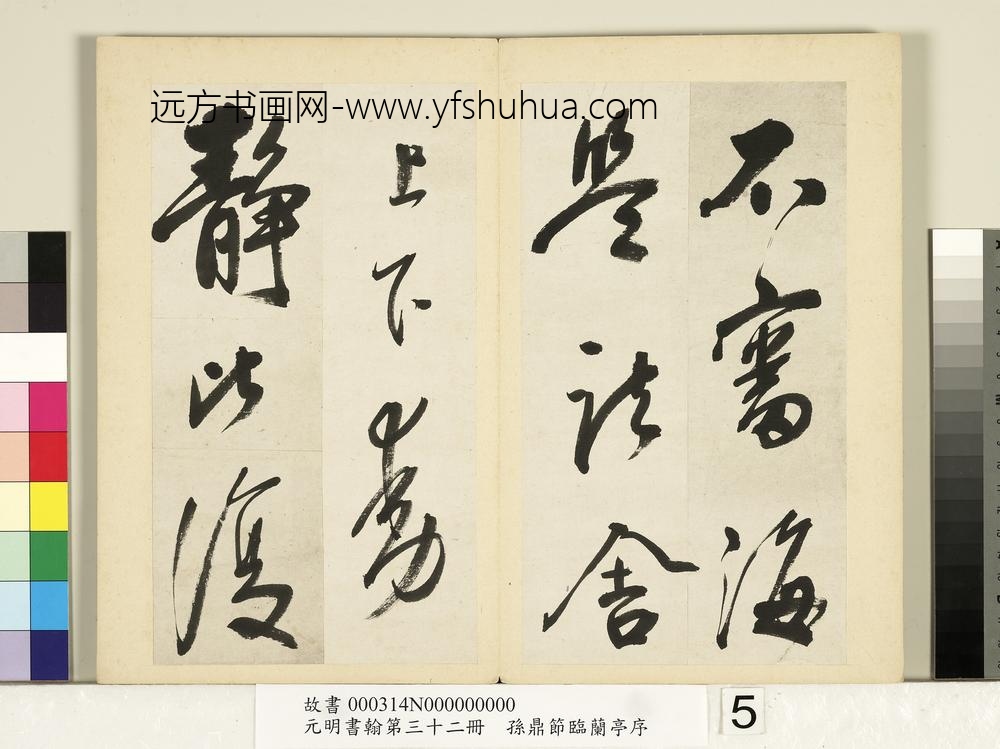 远方书画网-www.yfshuhua.com
不審海
是諸舍
上下動
靜比復
故書 000314N000000000
元明書翰第三十二冊 孫鼎節臨蘭亭序
5